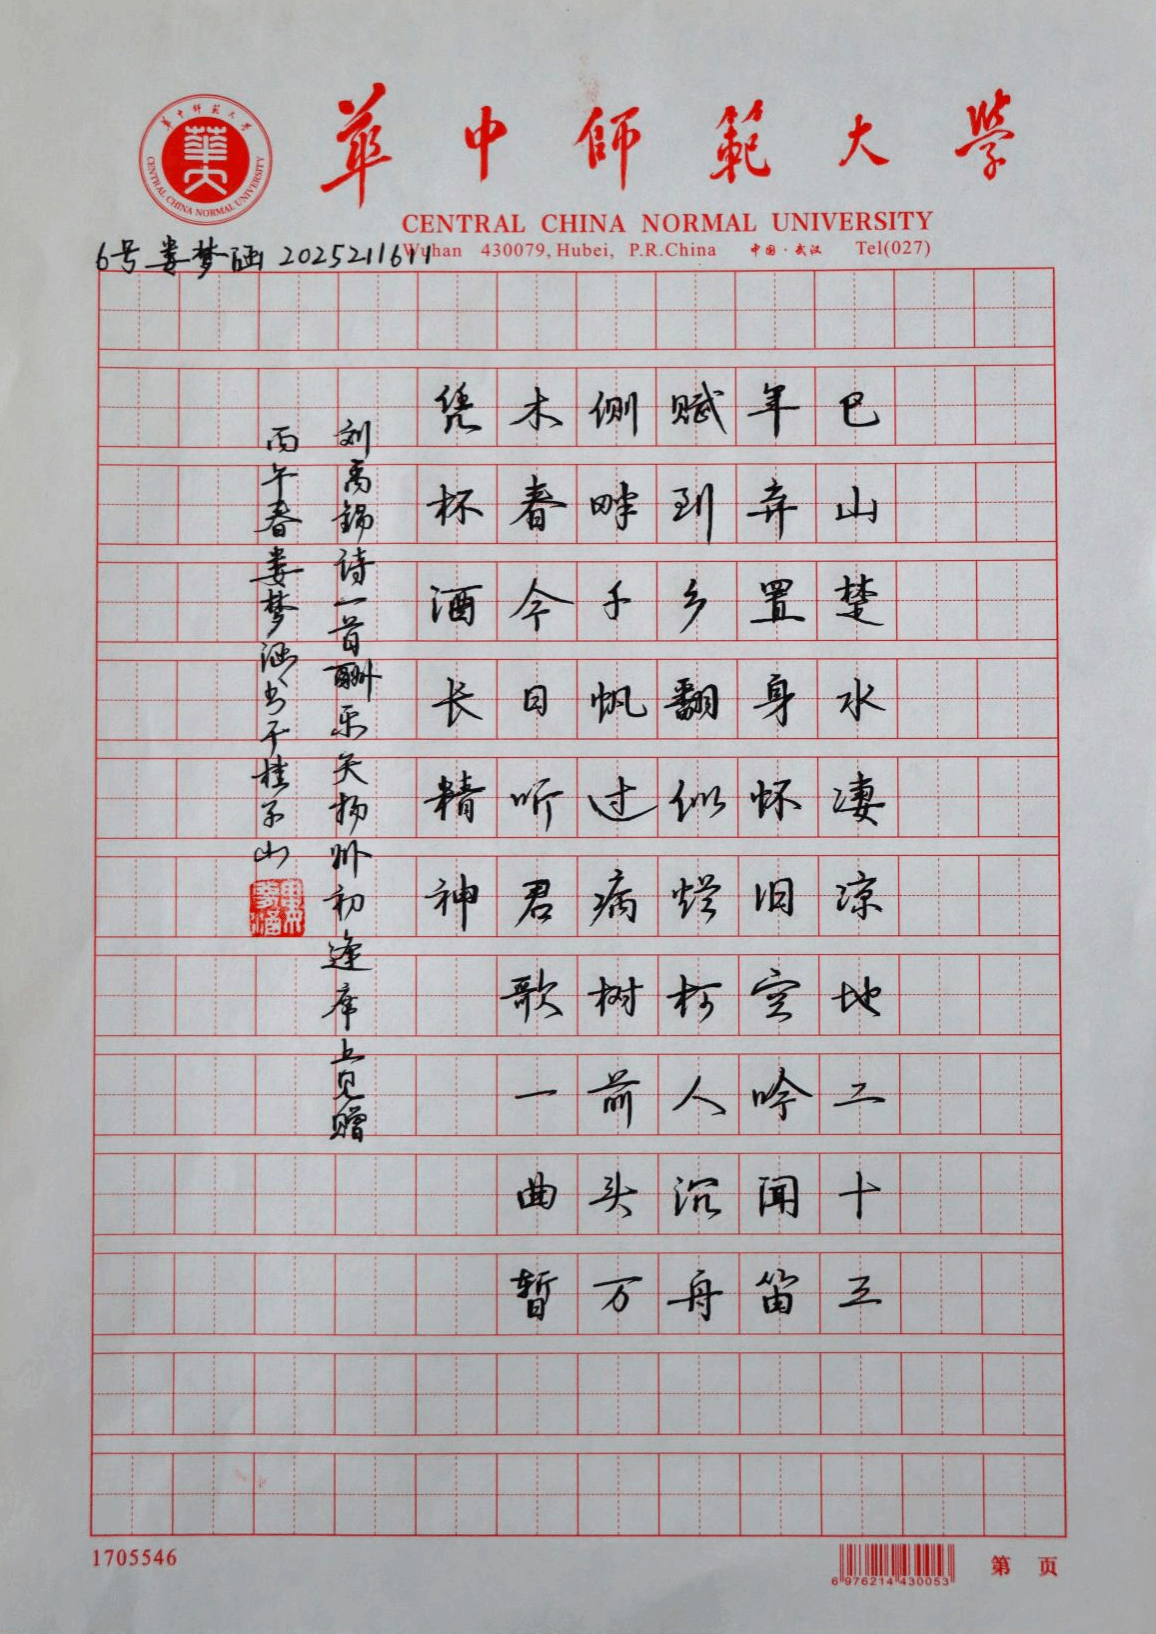 華中師範大學
CENTRAL CHINA NORMAL UNIVERSITY
Wuhan 430079, Hubei, P.R.China 中国·武汉 Tel(027)
華中師範大學
華大
CENTRAL CHINA NORMAL UNIVERSITY
6号娄梦涵 2025211611
巴山楚水凄凉地二十三
年弃置身怀旧空吟闻笛
赋到乡翻似烂柯人沉舟
侧畔千帆过病树前头万
木春今日听君歌一曲暂
凭杯酒长精神
刘禹锡诗一首酬乐天扬州初逢席上见赠
丙午春娄梦涵书于桂子山
1705546
6 976214 430053
第 页